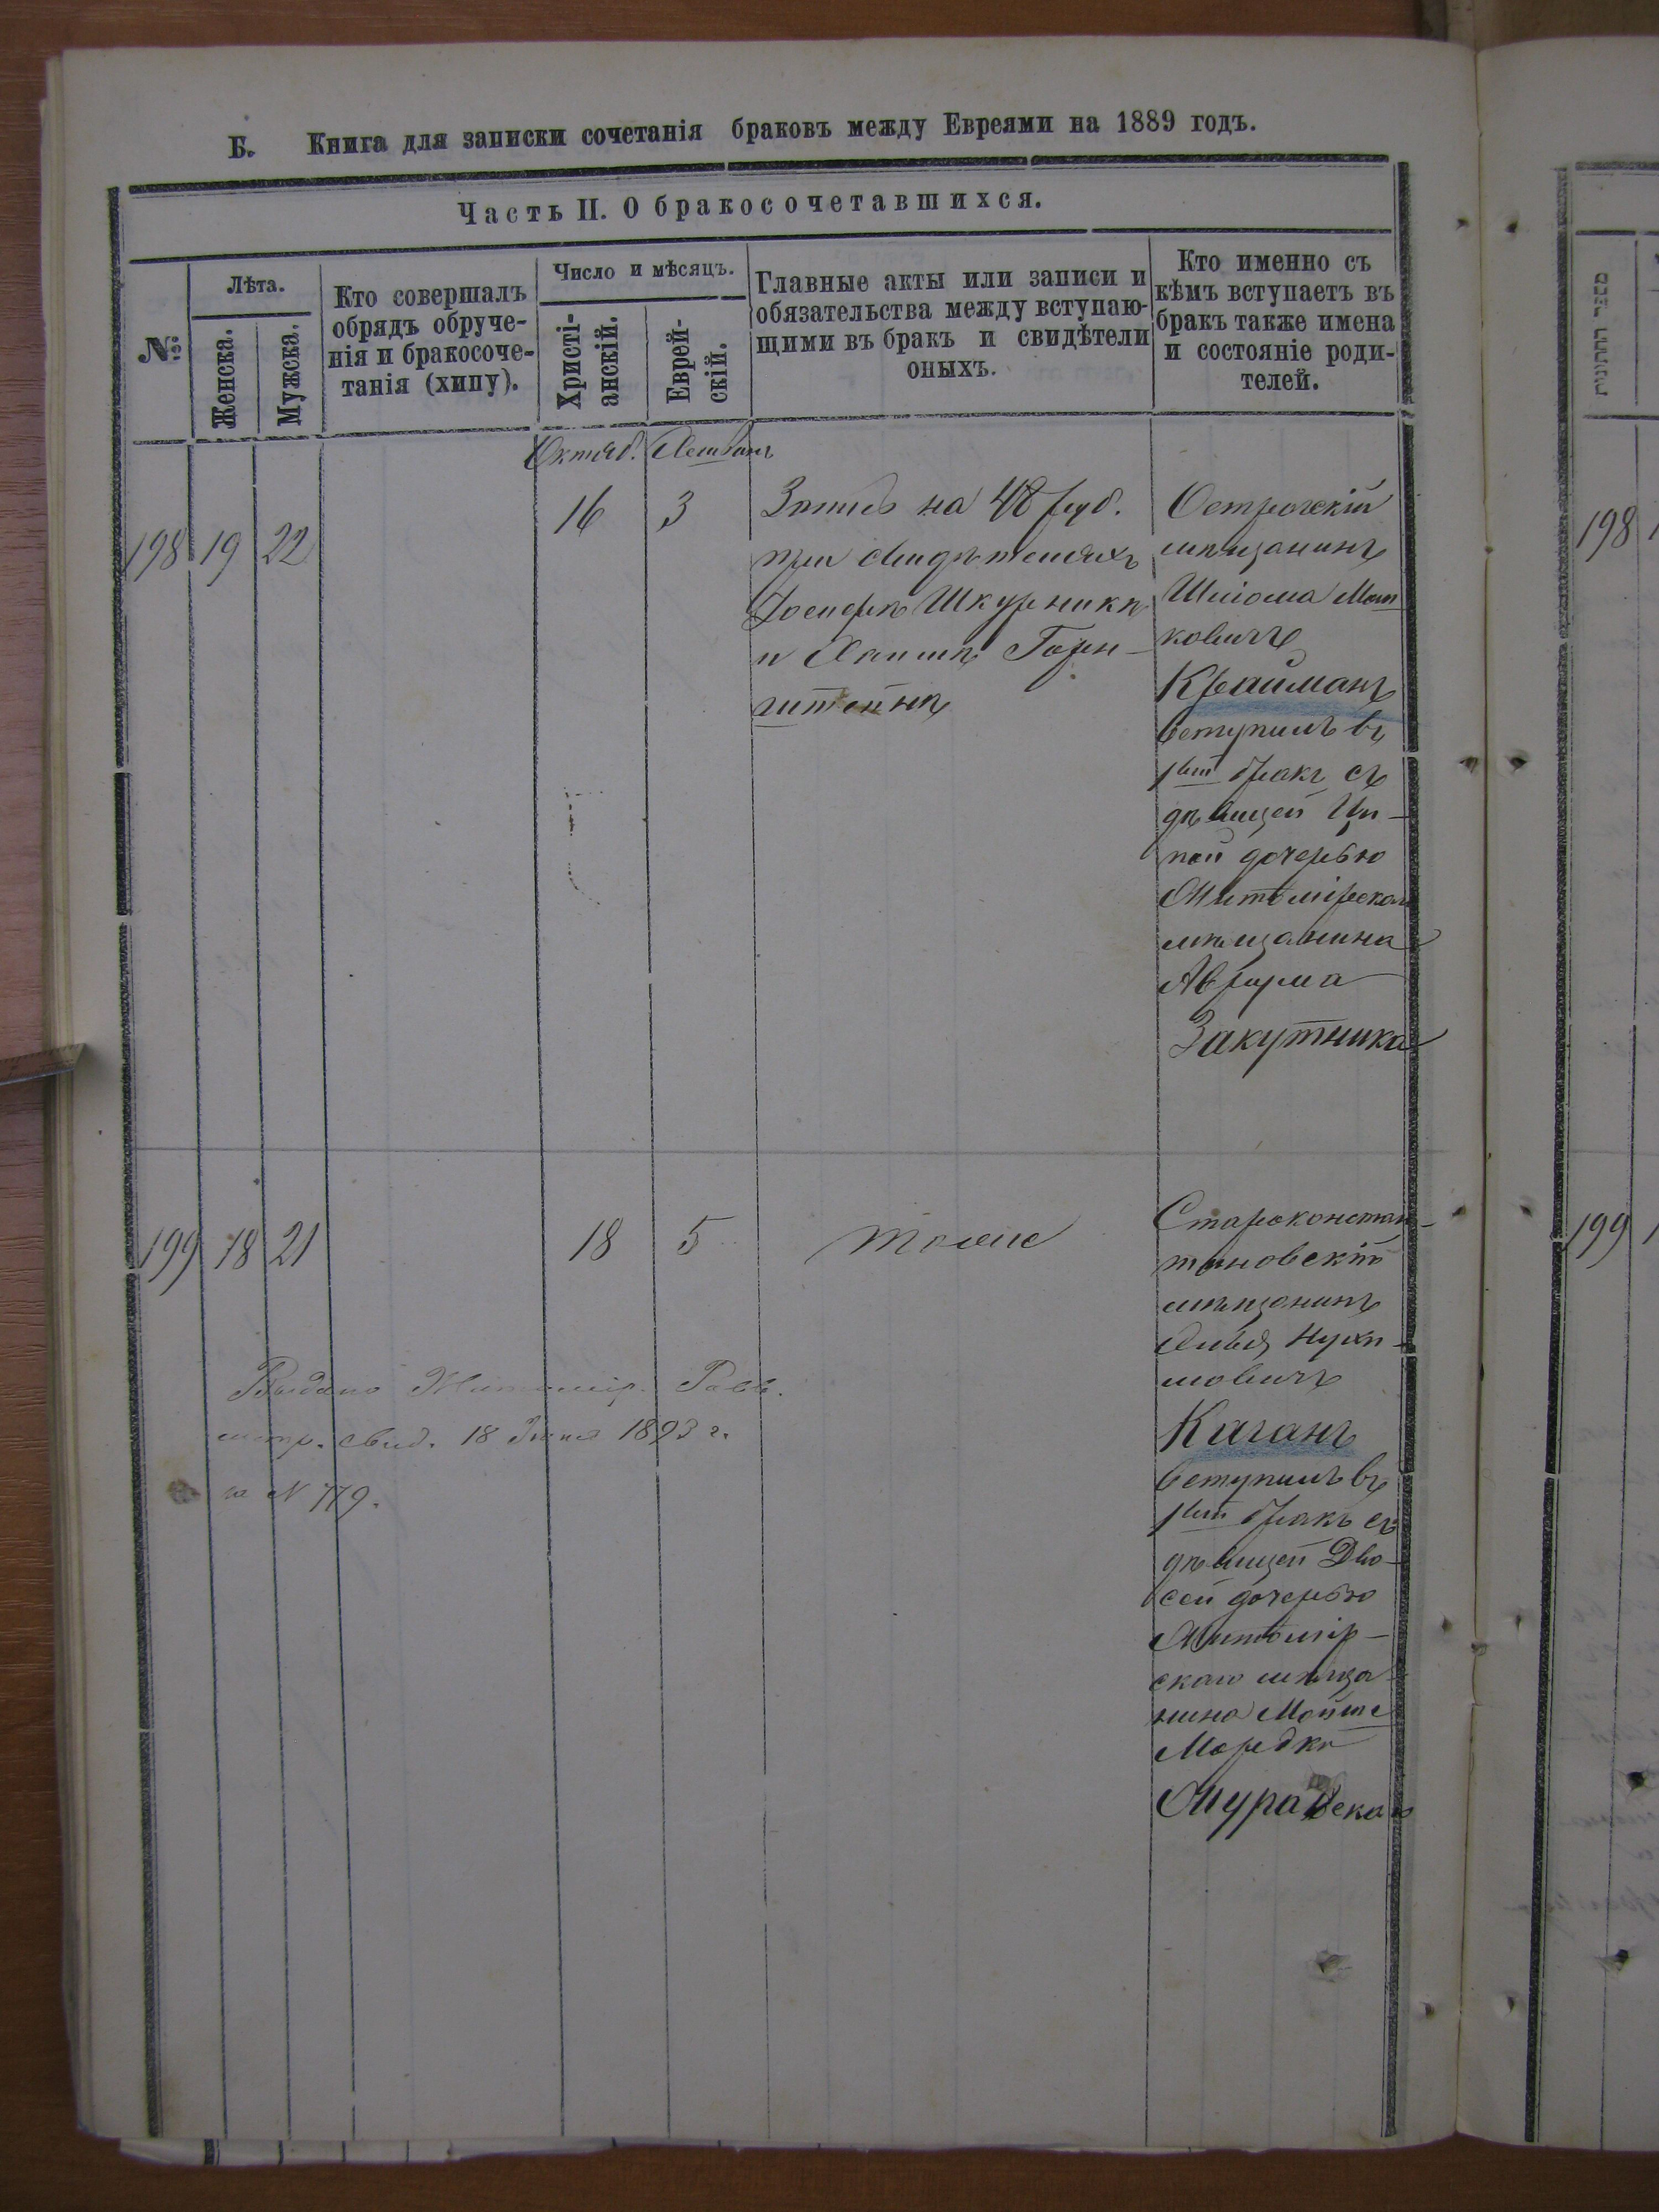 Б. Книга для записки сочетанія браковъ между Евреями на 1889 годъ.
Часть II. О бракосочетавшихся.
№
Лѣта.
Женска.
Мужска.
Кто совершалъ
обрядъ обруче-
нія и бракосоче-
танія (хипу).
Число и мѣсяцъ.
Христі-
анскій.
Еврей-
скій.
Главные акты или записи и
обязательства между вступаю-
щими въ бракъ и свидѣтели
оныхъ.
Кто именно съ
кѣмъ вступаетъ въ
бракъ также имена
и состояніе роди-
телей.
מספר החתונות
Октяб. Хешванъ
198 19 22
16 3
Запись на 48 руб.
при свидѣтеляхъ
Іосифѣ Шкурникѣ
и Хаимѣ Горн-
штейнѣ
Острожскій
мѣщанинъ
Шлiома
ковичъ
Крайманъ
вступилъ въ
1вый бракъ съ
дѣвицей Ци-
пой дочерью
Житомірскаго
мѣщанина
Аврума
Закутника
198
199 18 21
18 5
тоже
Староконстан-
тиновскій
мѣщанинъ
Нухи-
мовичъ
Каганъ
вступилъ въ
1вый бракъ съ
дѣвицей Дво-
сей дочерью
Житомір-
скаго мѣща-
нина Мойше
Мордка
Журавскаго
199
Выдано Житомір. Равв.
метр. свид. 18 1893 г.
за N 779.